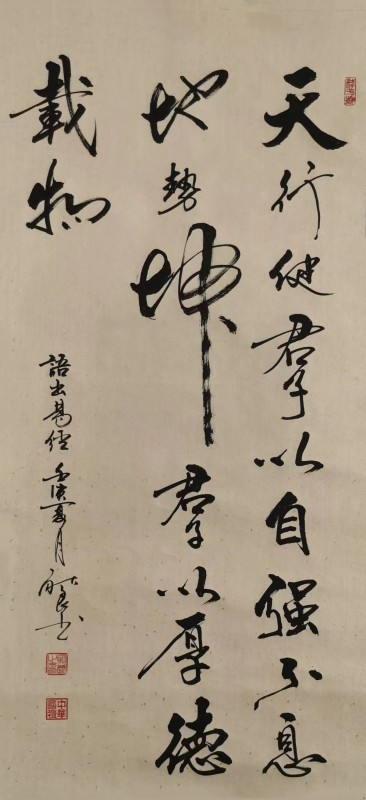 天行健君子以自强不息
地勢坤君子以厚德
載物
語出易經壬寅夏月